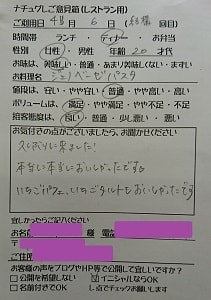 ナチュグレご意見箱(レストラン用)
ご利用日 4月 6日 (結構 回目)
時間帯 ランチ ・ ディナー ・ お弁当
性別 女性 ・ 男性 年齢 20 才代
お味は、美味しい・普通・あまり美味しくない・まずい
お料理名 ジェノベーゼパスタ
値段は、安い・やや安い・普通・やや高い・高い
ボリュームは、満足・やや満足・やや不足・不足
接客態度は、良い・普通・少し悪い・悪い
お気付きの点がございましたら、お聞かせください
久しぶりに来ました!
本当に本当においしかったですよ
いちごパフェ、いちごタルトもおいしかったです
宜しかったらご記入ください
お名 様 電
〒
ご住所
お客様の声をブログやHP等で公開して宜しいですか?
□公開を希望しない □イニシャルならOK
□名前付きでOK し点でチェックお願いします